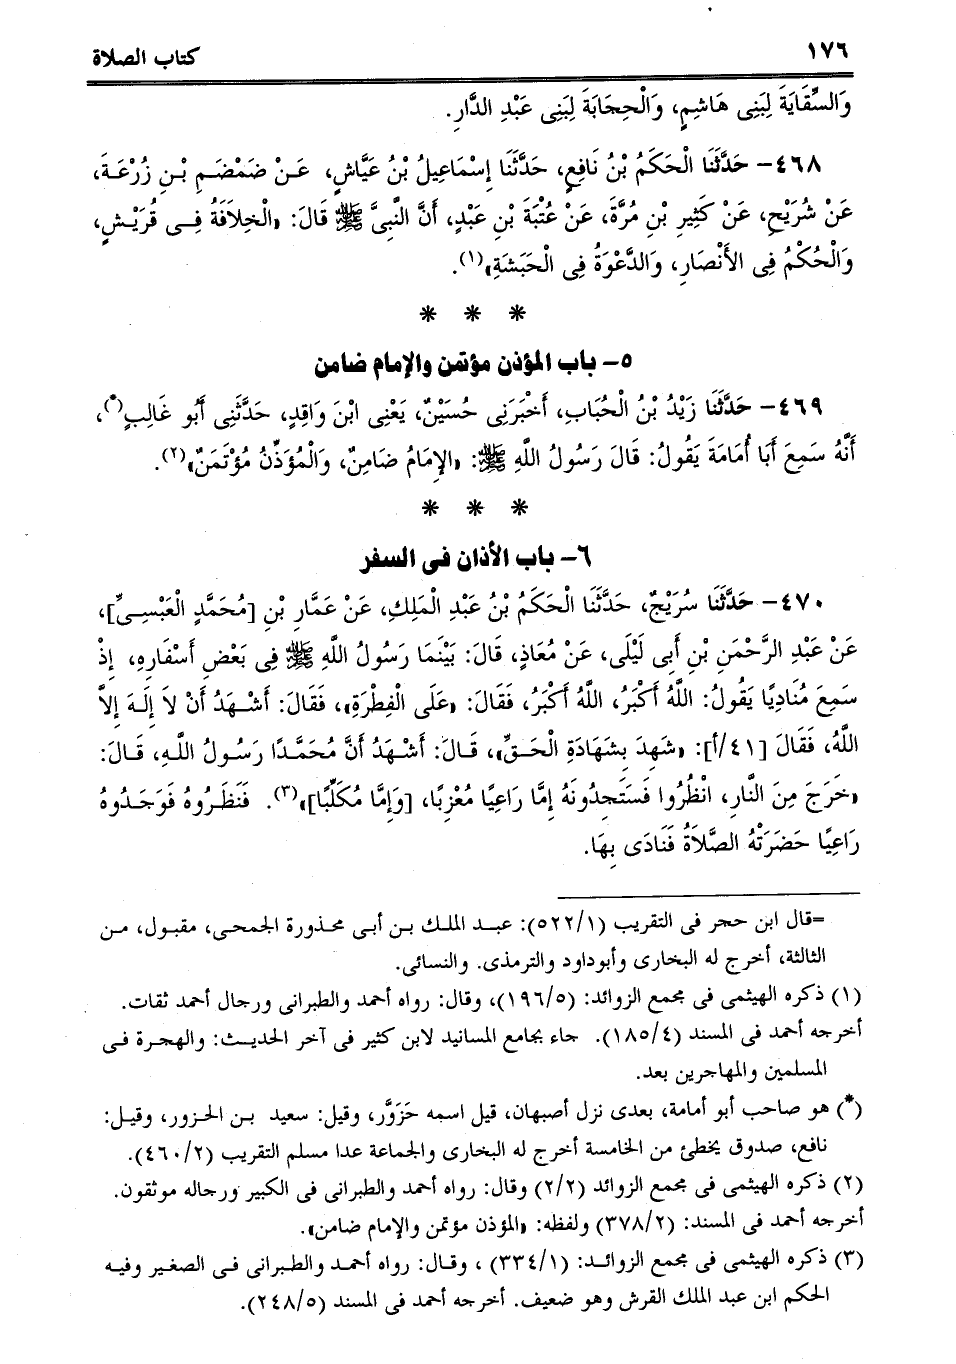 ١٧٦
كتاب الصلاة
وَالسِّقَايَةَ لِبَنِى هَاشِمٍ، وَالْحِجَابَةَ لِبَنِى عَبْدِ الدَّارِ.
٤٦٨- حَدَّثَنَا الْحَكَمُ بْنُ نَافِعٍ، حَدَّثَنَا إِسْمَاعِيلُ بْنُ عَيَّاشٍ، عَنْ ضَمْضَمِ بْنِ زُرْعَةَ،
عَنْ شُرَيْحٍ، عَنْ كَثِيرِ بْنِ مُرَّةَ، عَنْ عُتْبَةَ بْنِ عَبْدٍ، أَنَّ النَّبِىَّ ﷺ قَالَ: «الْخِلاَفَةُ فِى قُرَيْشٍ،
وَالْحُكْمُ فِى الأَنْصَارِ، وَالدَّعْوَةُ فِى الْحَبَشَةِ»(١).
* * *
٥- باب المؤذن مؤتمن والإمام ضامن
٤٦٩- حَدَّثَنَا زَيْدُ بْنُ الْحُبَابِ، أَخْبَرَنِى حُسَيْنٌ، يَعْنِى ابْنَ وَاقِدٍ، حَدَّثَنِى أَبُو غَالِبٍ(*)،
أَنَّهُ سَمِعَ أَبَا أُمَامَةَ يَقُولُ: قَالَ رَسُولُ اللَّهِ ﷺ: «الإِمَامُ ضَامِنٌ، وَالْمُؤَذِّنُ مُؤْتَمَنٌ»(٢).
* * *
٦- باب الأذان فى السفر
٤٧٠- حَدَّثَنَا سُرَيْجٌ، حَدَّثَنَا الْحَكَمُ بْنُ عَبْدِ الْمَلِكِ، عَنْ عَمَّارِ بْنِ [مُحَمَّدٍ الْعَبْسِىِّ]،
عَنْ عَبْدِ الرَّحْمَنِ بْنِ أَبِى لَيْلَى، عَنْ مُعَاذٍ، قَالَ: بَيْنَمَا رَسُولُ اللَّهِ ﷺ فِى بَعْضِ أَسْفَارِهِ، إِذْ
سَمِعَ مُنَادِيًا يَقُولُ: اللَّهُ أَكْبَرُ، اللَّهُ أَكْبَرُ، فَقَالَ: «عَلَى الْفِطْرَةِ»، فَقَالَ: أَشْهَدُ أَنْ لاَ إِلَهَ إِلاَّ
اللَّهُ، فَقَالَ [٤١/أ]: «شَهِدَ بِشَهَادَةِ الْحَقِّ»، قَالَ: أَشْهَدُ أَنَّ مُحَمَّدًا رَسُولُ اللَّهِ، قَالَ:
«خَرَجَ مِنَ النَّارِ، انْظُرُوا فَسَتَجِدُونَهُ إِمَّا رَاعِيًا مُعْزِبًا، [وَإِمَّا مُكَلِّبًا]»(٣). فَنَظَرُوهُ فَوَجَدُوهُ
رَاعِيًا حَضَرَتْهُ الصَّلاَةُ فَنَادَى بِهَا.
=قال ابن حجر فى التقريب (٥٢٢/١): عبد الملك بن أبى محذورة الجمحى، مقبول، من
الثالثة، أخرج له البخارى وأبوداود والترمذى. والنسائى.
(١) ذكره الهيثمى فى مجمع الزوائد: (١٩٦/٥)، وقال: رواه أحمد والطبرانى ورجال أحمد ثقات.
أخرجه أحمد فى المسند (١٨٥/٤). جاء بجامع المسانيد لابن كثير فى آخر الحديث: والهجرة فى
المسلمين والمهاجرين بعد.
(*) هو صاحب أبو أمامة، بعدى نزل أصبهان، قيل اسمه حَزَوَّر، وقيل: سعيد بن الحزور، وقيل:
نافع، صدوق يخطئ من الخامسة أخرج له البخارى والجماعة عدا مسلم التقريب (٤٦٠/٢).
(٢) ذكره الهيثمى فى مجمع الزوائد (٢/٢) وقال: رواه أحمد والطبرانى فى الكبير ورجاله موثقون.
أخرجه أحمد فى المسند: (٣٧٨/٢) ولفظه: «المؤذن مؤتمن والإمام ضامن».
(٣) ذكره الهيثمى فى مجمع الزوائد: (٣٣٤/١) ، وقال: رواه أحمد والطبرانى فى الصغير وفيه
الحكم ابن عبد الملك القرش وهو ضعيف. أخرجه أحمد فى المسند (٢٤٨/٥).